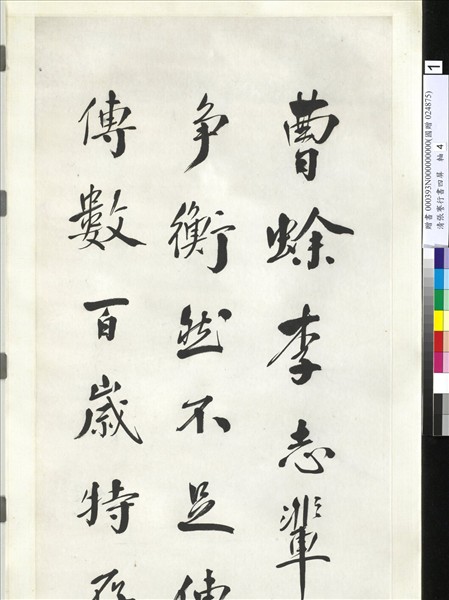 曹蜍李志輩
争衡然不足傳
傳數百歲特存
贈書 000393N000000000(國贈 024875)
清張謇行書四屏 軸 4
1